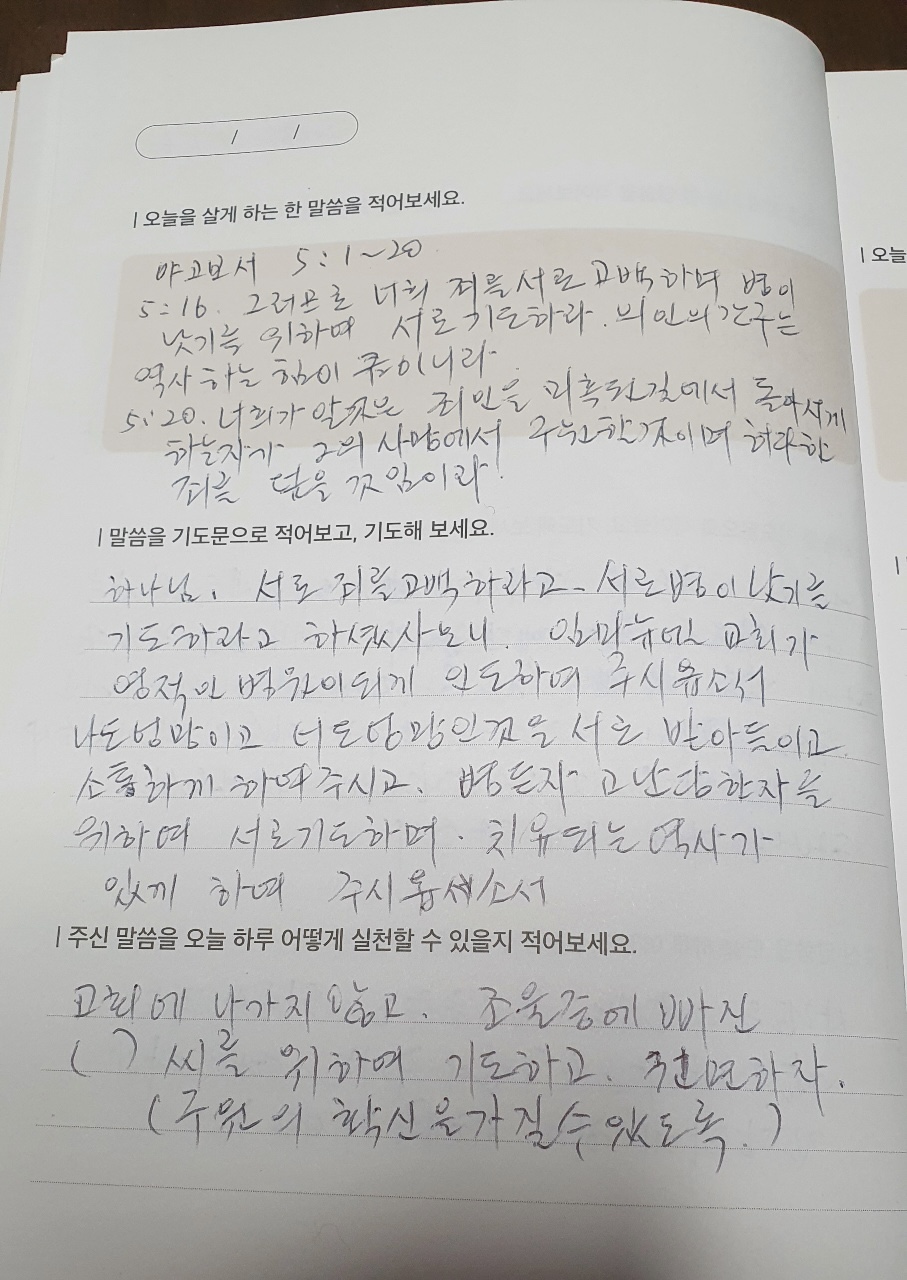 / /
| 오늘을 살게 하는 한 말씀을 적어보세요.
야고보서 5:1~20
5:16. 그러므로 너희 죄를 서로 고백하며 병이
낫기를 위하여 서로 기도하라. 의인의 간구는
역사하는 힘이 큼이니라
5:20. 너희가 알것은 죄인을 미혹된길에서 돌아서게
하는자가 그의 사망에서 구원할것이며 허다한
죄를 덮을 것임이라
| 말씀을 기도문으로 적어보고, 기도해 보세요.
하나님. 서로 죄를 고백하라고 서로 병이 낫기를
기도하라고 하셨사오니. 임마누엘 교회가
영적인 병원이되게 인도하여 주시옵소서
나도엉망이고 너도엉망인것을 서로 받아들이고
소통하게 하여주시고. 병든자 고난당한자를
위하여 서로기도하며. 치유되는 역사가
있게 하여 주시옵소서
| 주신 말씀을 오늘 하루 어떻게 실천할 수 있을지 적어보세요.
교회에 나가지 않고. 조울증에 빠진
( ) 씨를 위하여 기도하고. 권면하자.
(구원의 확신을가질수있도록.)
| 오늘